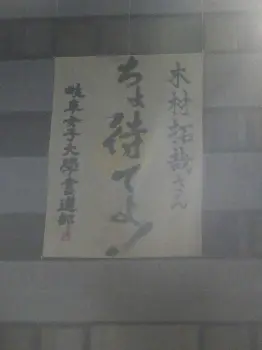 木村拓哉さん
ちょ待てよ!
岐阜女子大學書道部